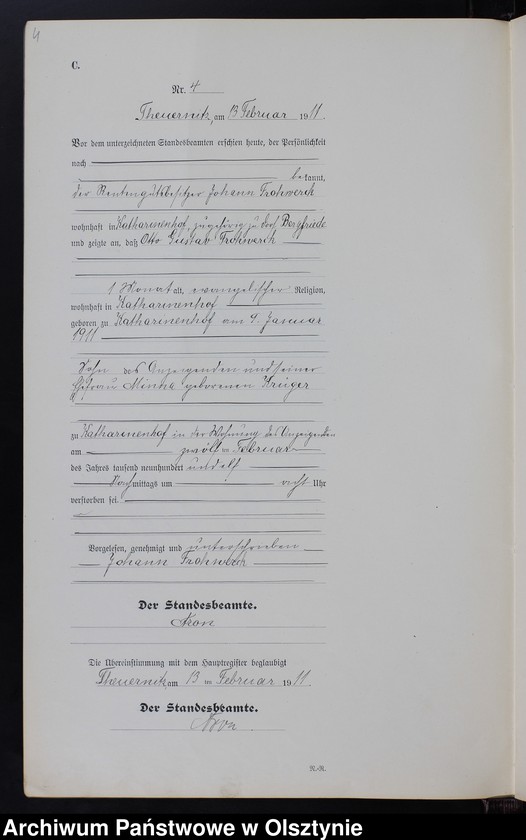 4
C.
Nr. 4
Theuernitz, am 13 Februar 1911.
Vor dem unterzeichneten Standesbeamten erschien heute, der Persönlichkeit
nach
bekannt,
der Rentengutsbesitzer Johann Frohwerck
wohnhaft in Katharinenhof, zugehörig zu Dorf Bergfriede
und zeigte an, daß Otto Gustav Frohwerck
1 Monat alt, evangelischer Religion,
wohnhaft in Katharinenhof
geboren zu Katharinenhof am 9. Januar
1911
Sohn des Anzeigenden und seiner
Ehefrau Minna geborenen Krüger
zu Katharinenhof in der Wohnung des Anzeigenden
am zwölften Februar
des Jahres tausend neunhundert und elf
Nachmittags um acht Uhr
verstorben sei.
Vorgelesen, genehmigt und unterschrieben
Johann Frohwerck
Der Standesbeamte.
Die Übereinstimmung mit dem Hauptregister beglaubigt
Theuernitz, am 13 ten Februar 1911.
Der Standesbeamte.
R.-R.
Archiwum Państwowe w Olsztynie